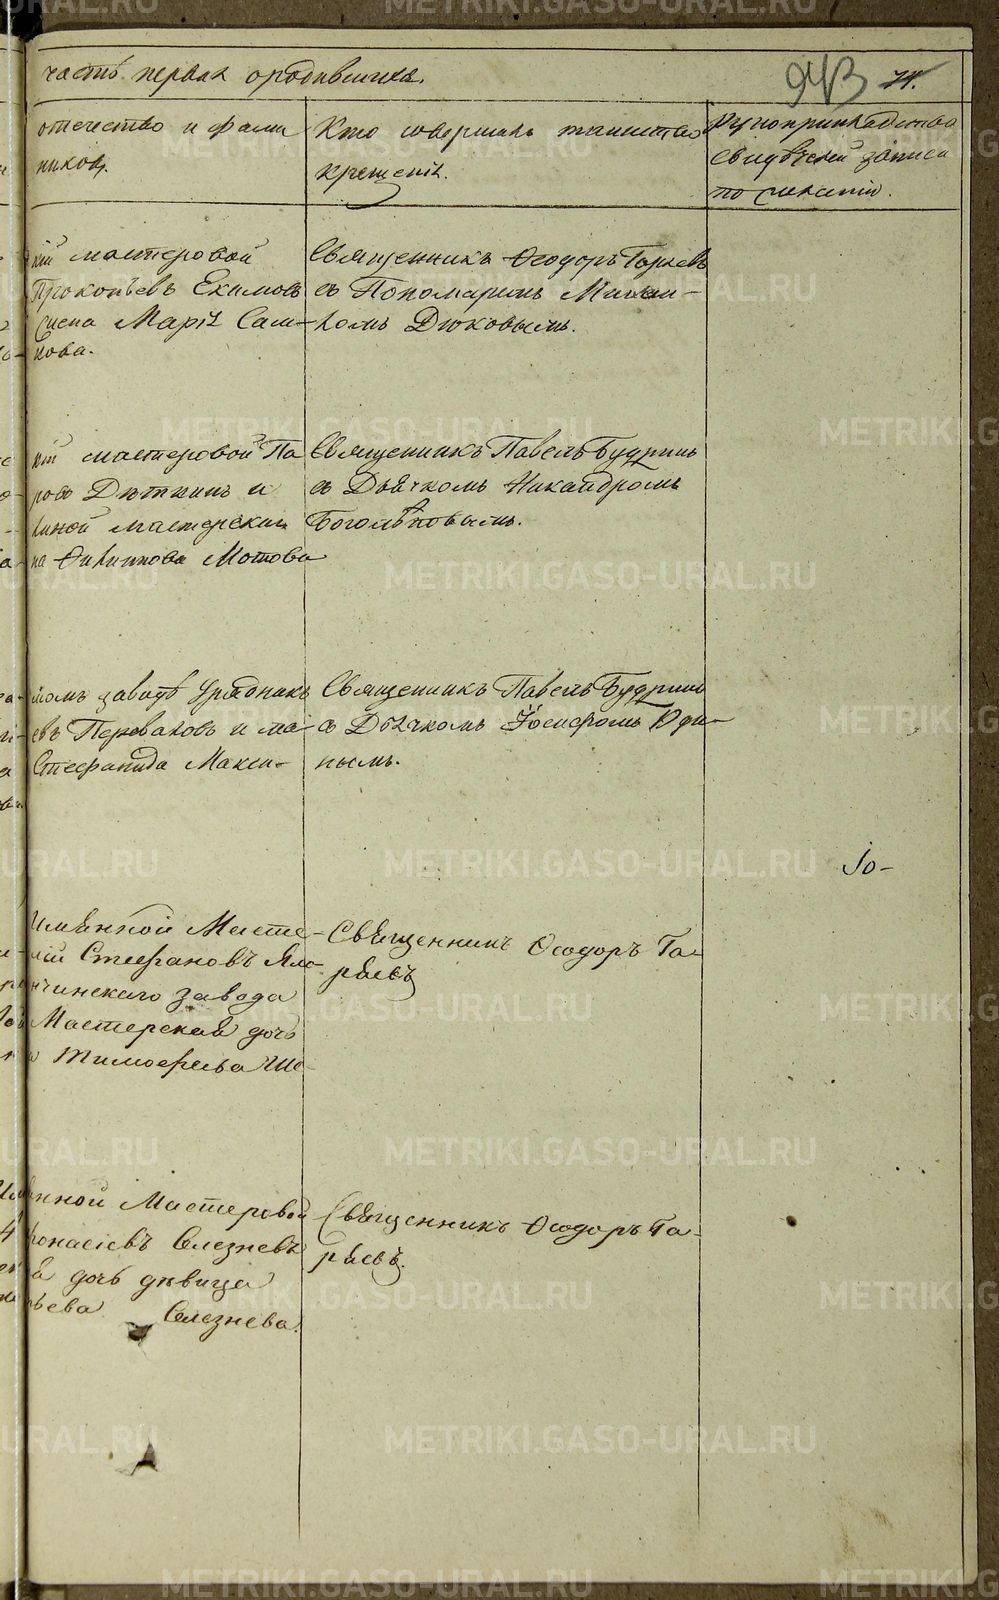 часть первая о родившихся.
943
отечество и фами
ников.
Кто совершалъ таинство
крещенія.
Рукоприкладства
свидѣтелей записи
по желанію.
кій мастеровой
Прокопьевъ Екимовъ
Марія Сам-
нова.
Священникъ Ѳеодоръ Гаряевъ
съ Пономаремъ Михаи-
ломъ Дюковымъ.
кій мастеровой Па
ровъ Дѣткинъ и
мастерская
на Ѳилиппова Мотова
Священникъ Павелъ Будринъ
съ Дьячкомъ Никандромъ
Боголѣповымъ.
комъ заводѣ Урядникъ
евъ Переваловъ и
Стефанида Макси-
Священникъ Павелъ Будринъ
съ Дьячкомъ Іосифомъ Юди-
нымъ.
Іо-
Масте-
лій Стефановъ Яла-
нчинскаго завода
Мастерская дочь
Тимофеева Ше-
Священникъ Ѳеодоръ Га-
ряевъ
нной Мастеровой
Афонасіевъ Селезневъ
я дочь дѣвица
рьева Селезнева.
Священникъ Ѳеодоръ Га-
ряевъ.
METRIKI.GASO-URAL.RU